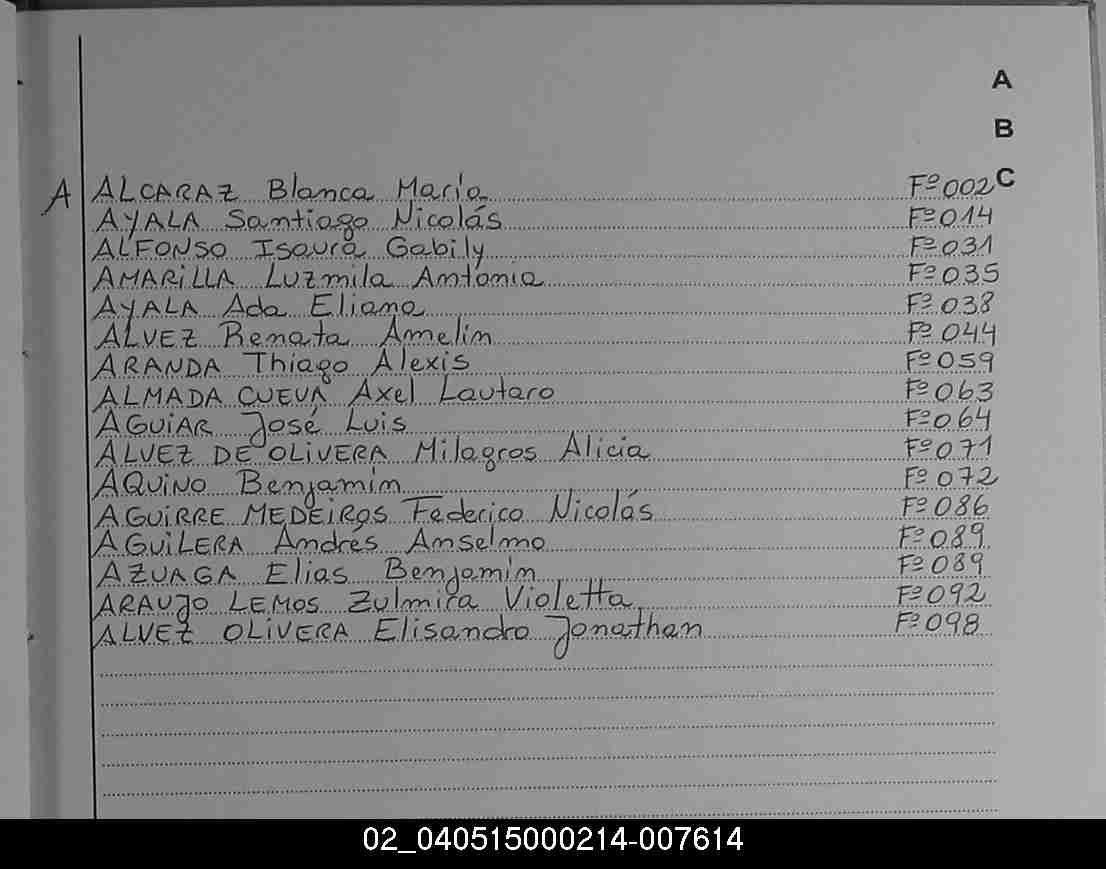 A
B
C
A ALCARAZ Blanca María Fº 002
AYALA Santiago Nicolás Fº 014
ALFONSO Isaura Gabily Fº 031
AMARiLLA Luzmila Antonia Fº 035
AYALA Ada Eliana Fº 038
ALVEZ Renata Amelin Fº 044
ARANDA Thiago Alexis Fº 059
ALMADA CUEVA Axel Lautaro Fº 063
AGUiAR José Luis Fº 064
ALVEZ DE OLiVERA Milagros Alicia Fº 071
AQUiNO Benjamín Fº 072
AGUiRRE MEDEiROS Federico Nicolás Fº 086
AGUiLERA Andrés Anselmo Fº 089
AZUAGA Elias Benjamín Fº 089
ARAUJO LEMOS Zulmira Violetta Fº 092
ALVEZ OLiVERA Elisandro Jonathan Fº 098
02_040515000214-007614